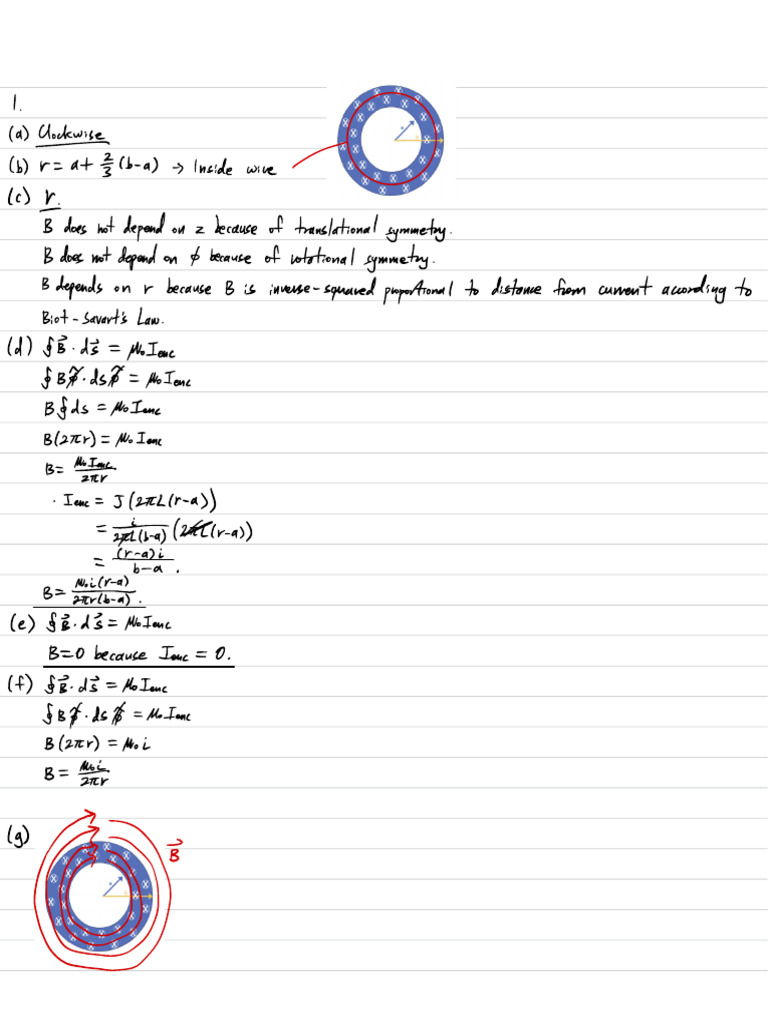 1.
(a) Clockwise
(b) r = a + 2/3 (b-a) → Inside wire
(c) r.
B does not depend on z because of translational symmetry.
B does not depend on ϕ because of rotational symmetry.
B depends on r because B is inverse-squared proportional to distance from current according to
Biot-Savart's Law.
(d) ∮B⃗·ds⃗ = μ₀Ienc
∮Bϕ̂·dsϕ̂ = μ₀Ienc
B∮ds = μ₀Ienc
B(2πr) = μ₀Ienc
B = μ₀Ienc/2πr
· Ienc = J(2πL(r-a))
= i/2πL(b-a) (2πL(r-a))
= (r-a)i/b-a.
B = μ₀i(r-a)/2πr(b-a).
(e) ∮B⃗·ds⃗ = μ₀Ienc
B=0 because Ienc = 0.
(f) ∮B⃗·ds⃗ = μ₀Ienc
∮Bϕ̂·dsϕ̂ = μ₀Ienc
B(2πr) = μ₀i
B = μ₀i/2πr
(g)
B⃗